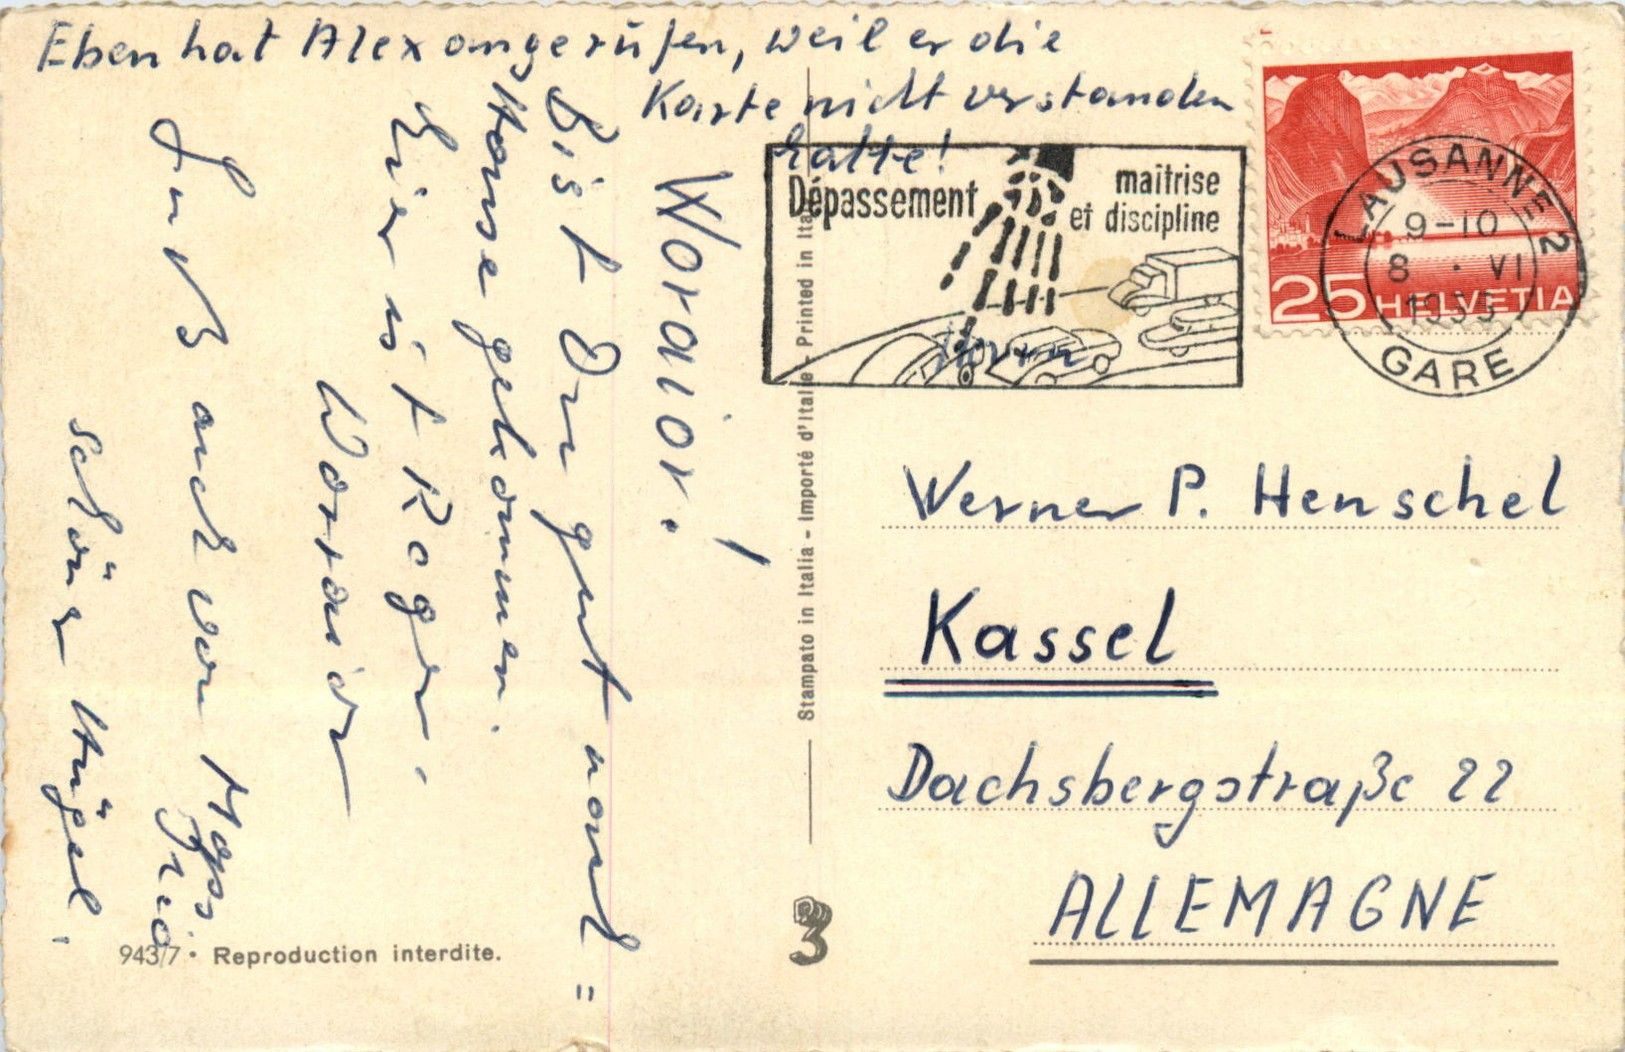 Eben hat Alex angerufen, weil er die
Karte nicht verstanden
hatte!
Woraior!
Bist Du gut nach =
Hause gekommen.
Hier ist Roger.
Woraior
Gruß auch von
schöne Hügel.
Dépassement
maîtrise
et discipline
LAUSANNE 2
9-10
8 · VI
1955
GARE
25 HELVETIA
Herrn
Werner P. Henschel
Kassel
Dachsbergstraße 22
ALLEMAGNE
Stampato in Italia - Importé d'Italie - Printed in Italy
943/7 • Reproduction interdite.
3